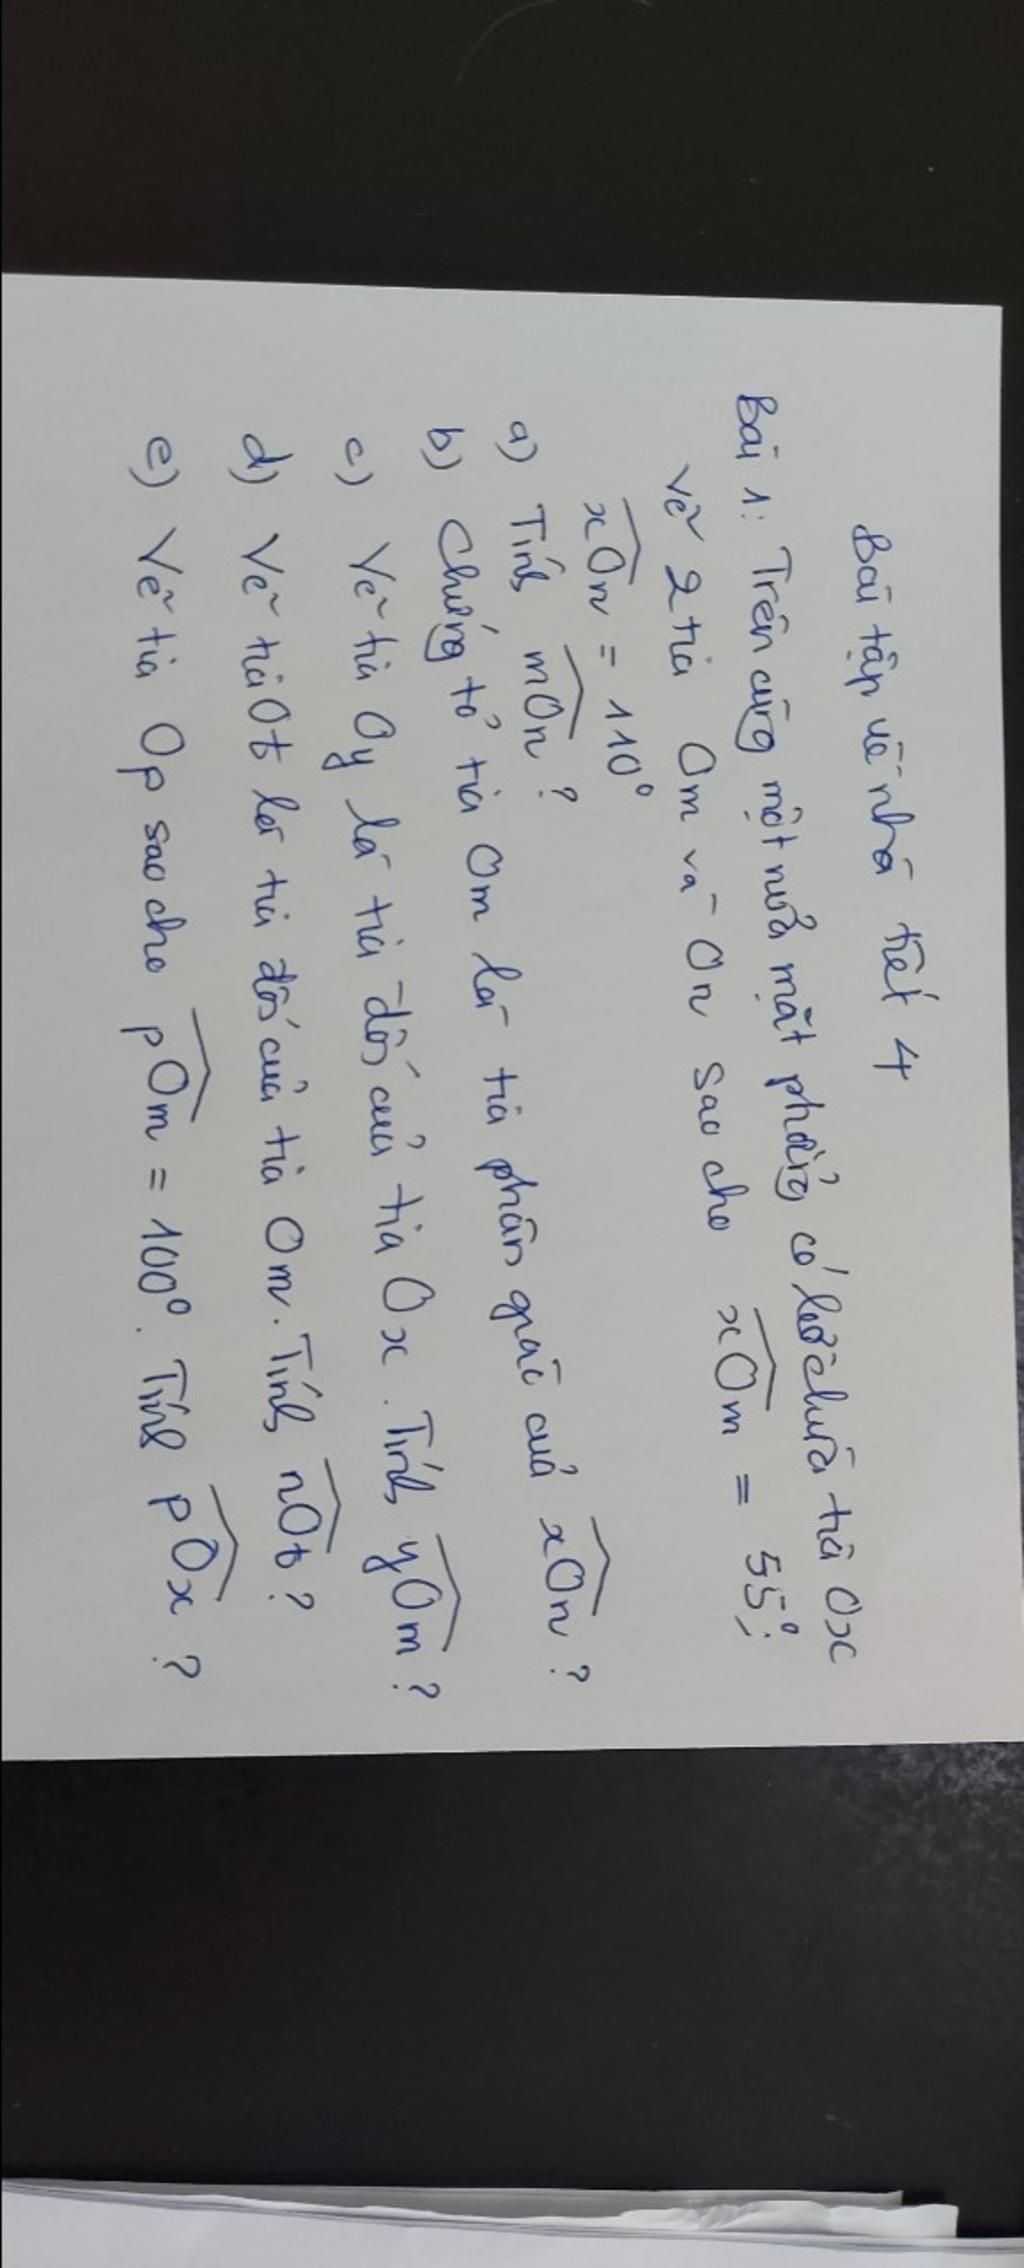 Bài tập về nhà tiết 4
Bài 1: Trên cùng một nửa mặt phẳng có bờ chứa tia Ox
vẽ 2 tia Om và On sao cho xOm = 55°;
xOn = 110°
a) Tính mOn ?
b) Chứng tỏ tia Om là tia phân giác của xOn ?
c) Vẽ tia Oy là tia đối của tia Ox. Tính yOm ?
d) Vẽ tia Ot là tia đối của tia Om. Tính nOt ?
e) Vẽ tia Op sao cho pOm = 100°. Tính pOx ?